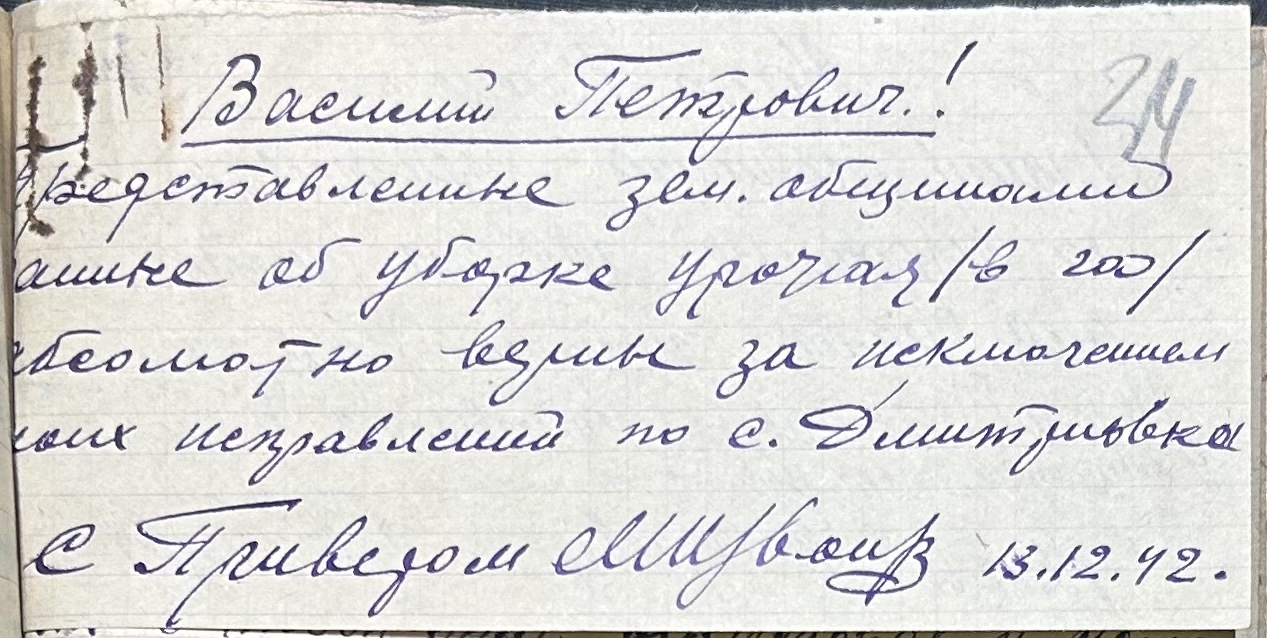 34
Василий Петрович.!
Представленные зем. общинами
данные об уборке урожая /в 200/
абсолютно верны за исключением
моих исправлений по с. Дмитриевка
С Приветом
13.12.42.